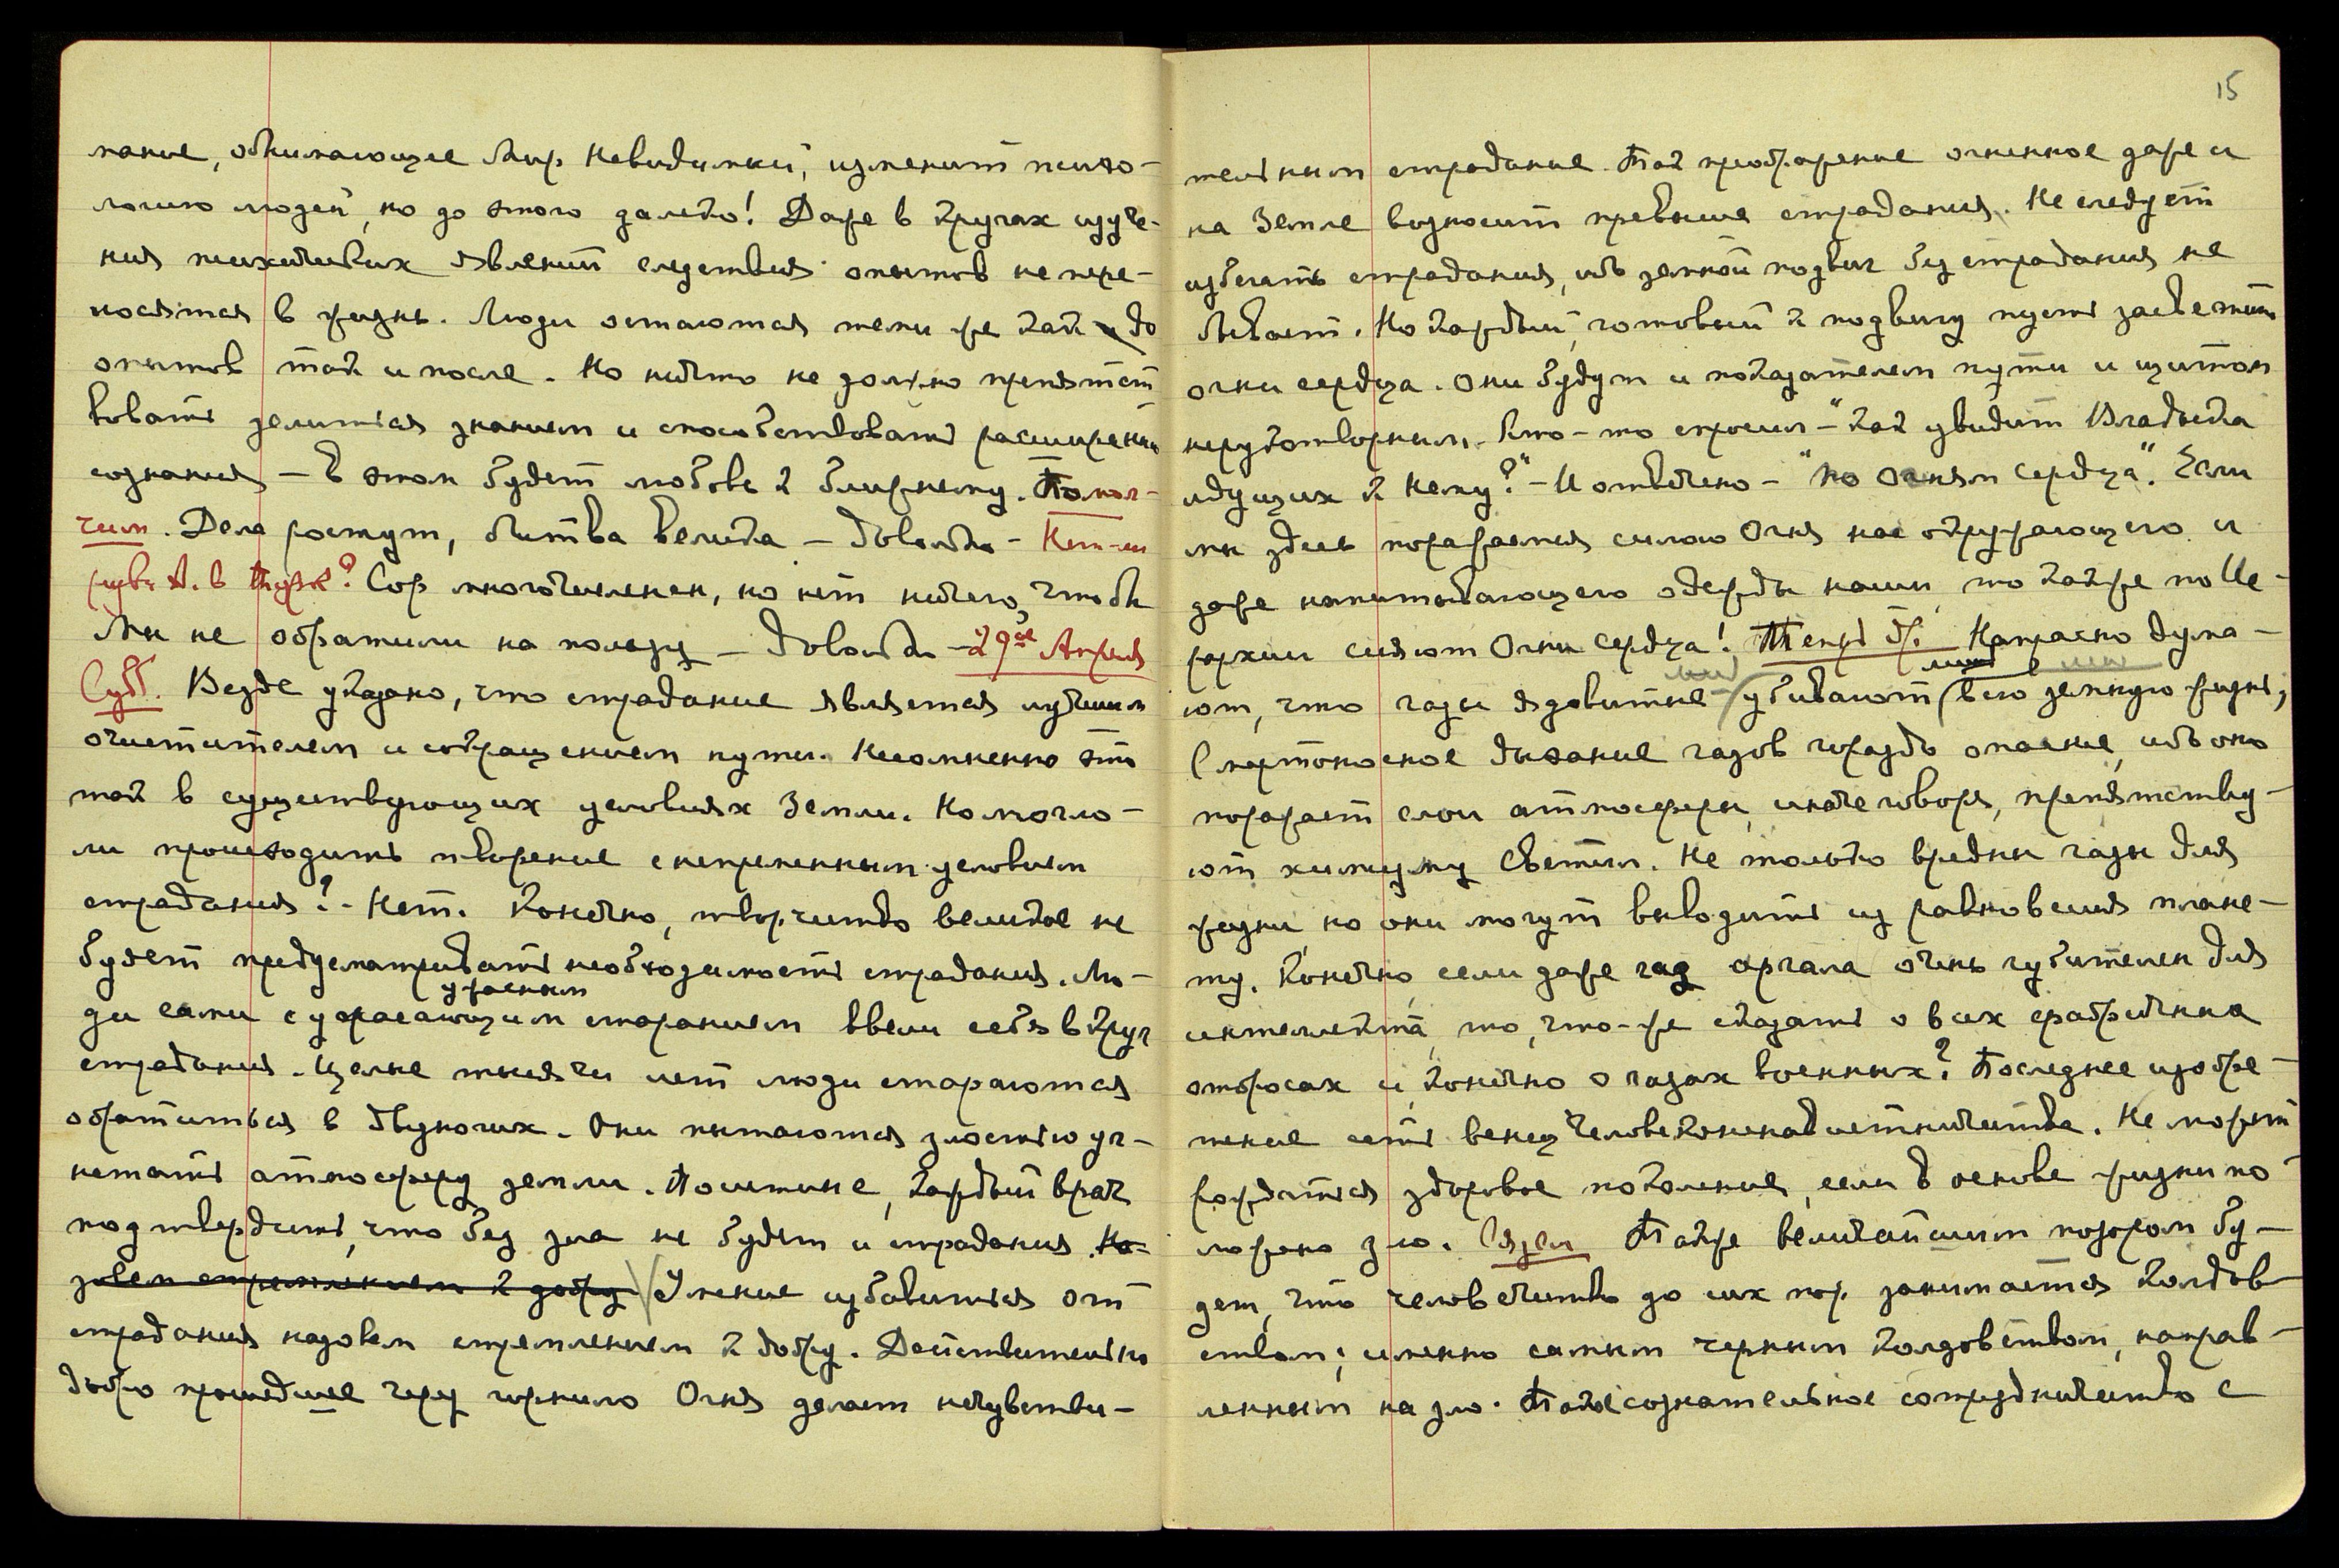 мание, обнимающее Мир Невидимый, изменит психо-
логию людей, но до этого далеко! Даже в кругах изуче-
ния психических явлений следствия опытов не пере-
носятся в жизнь. Люди остаются теми же как и до
опытов так и после. Но ничто не должно препятст
вовать делиться знанием и способствовать расширению
сознания – в этом будет любовь к ближнему. Помол-
чим. Дела растут, битва велика – довольно –
Сор многочислен, но нет ничего, чтобы
Мы не обратили на пользу – Довольно – 29ое Апреля
Субб. Везде указано, что страдание является лучшим
очистителем и сокращением пути. Несомненно это
так в существующих условиях Земли. Но могло-
ли происходить творение с непременным условием
страдания? – Нет. Конечно, творчество великое не
будет предусматривать необходимость страдания. Лю-
ужасным
ди сами с ужасающим старанием ввели себя в круг
страдания. Целые тысячи лет люди стараются
обратиться в двуногих. Они пытаются злостью уг-
нетать атмосферу земли. Поистине, каждый врач
подтвердит, что без зла не будет и страдания. На-
зовем стремлением к добру Умение избавиться от
страдания назовем стремлением к добру. Действительно
добро прошедшее через горнило Огня делает нечувстви-
15
тельным страдание. Так преображение огненное даже и
на Земле возносит превыше страдания. Не следует
избегать страдания, ибо земной подвиг без страдания не
бывает. Но каждый, готовый к подвигу пусть засветит
огни сердца. Они будут и показателем пути и щитом
нерукотворным. Кто-то спросил – "Как увидит Владыка
идущих к Нему?" – И отвечено – "По Огням сердца". Если
мы здесь поражаемся силою Огня нас окружающего и
даже напитывающего одежды наши, то также по Ие-
рархии сияют Огни сердца! Напрасно дума-
лишь
ют, что газы ядовитые убивают всю земную жизнь,
Смертоносное дыхание газов гораздо опаснее, ибо оно
поражает слои атмосферы, иначе говоря, препятству-
ют химизму Светил. Не только вредны газы для
жизни, но они могут выводить из равновесия плане-
ту. Конечно, если даже газ аргала очень губителен для
интеллекта, то, что-же сказать о всех фабричных
отбросах и, конечно о газах военных? Последнее изобре-
тение есть венец человеконенавистничества. Не может
рождаться здоровое поколение, если в основе жизни по-
ложено зло. Также величайшим позором бу-
дет, что человечество до сих пор занимается колдов-
ством; именно самым черным колдовством, направ-
ленным на зло. Такое сознательное сотрудничество с